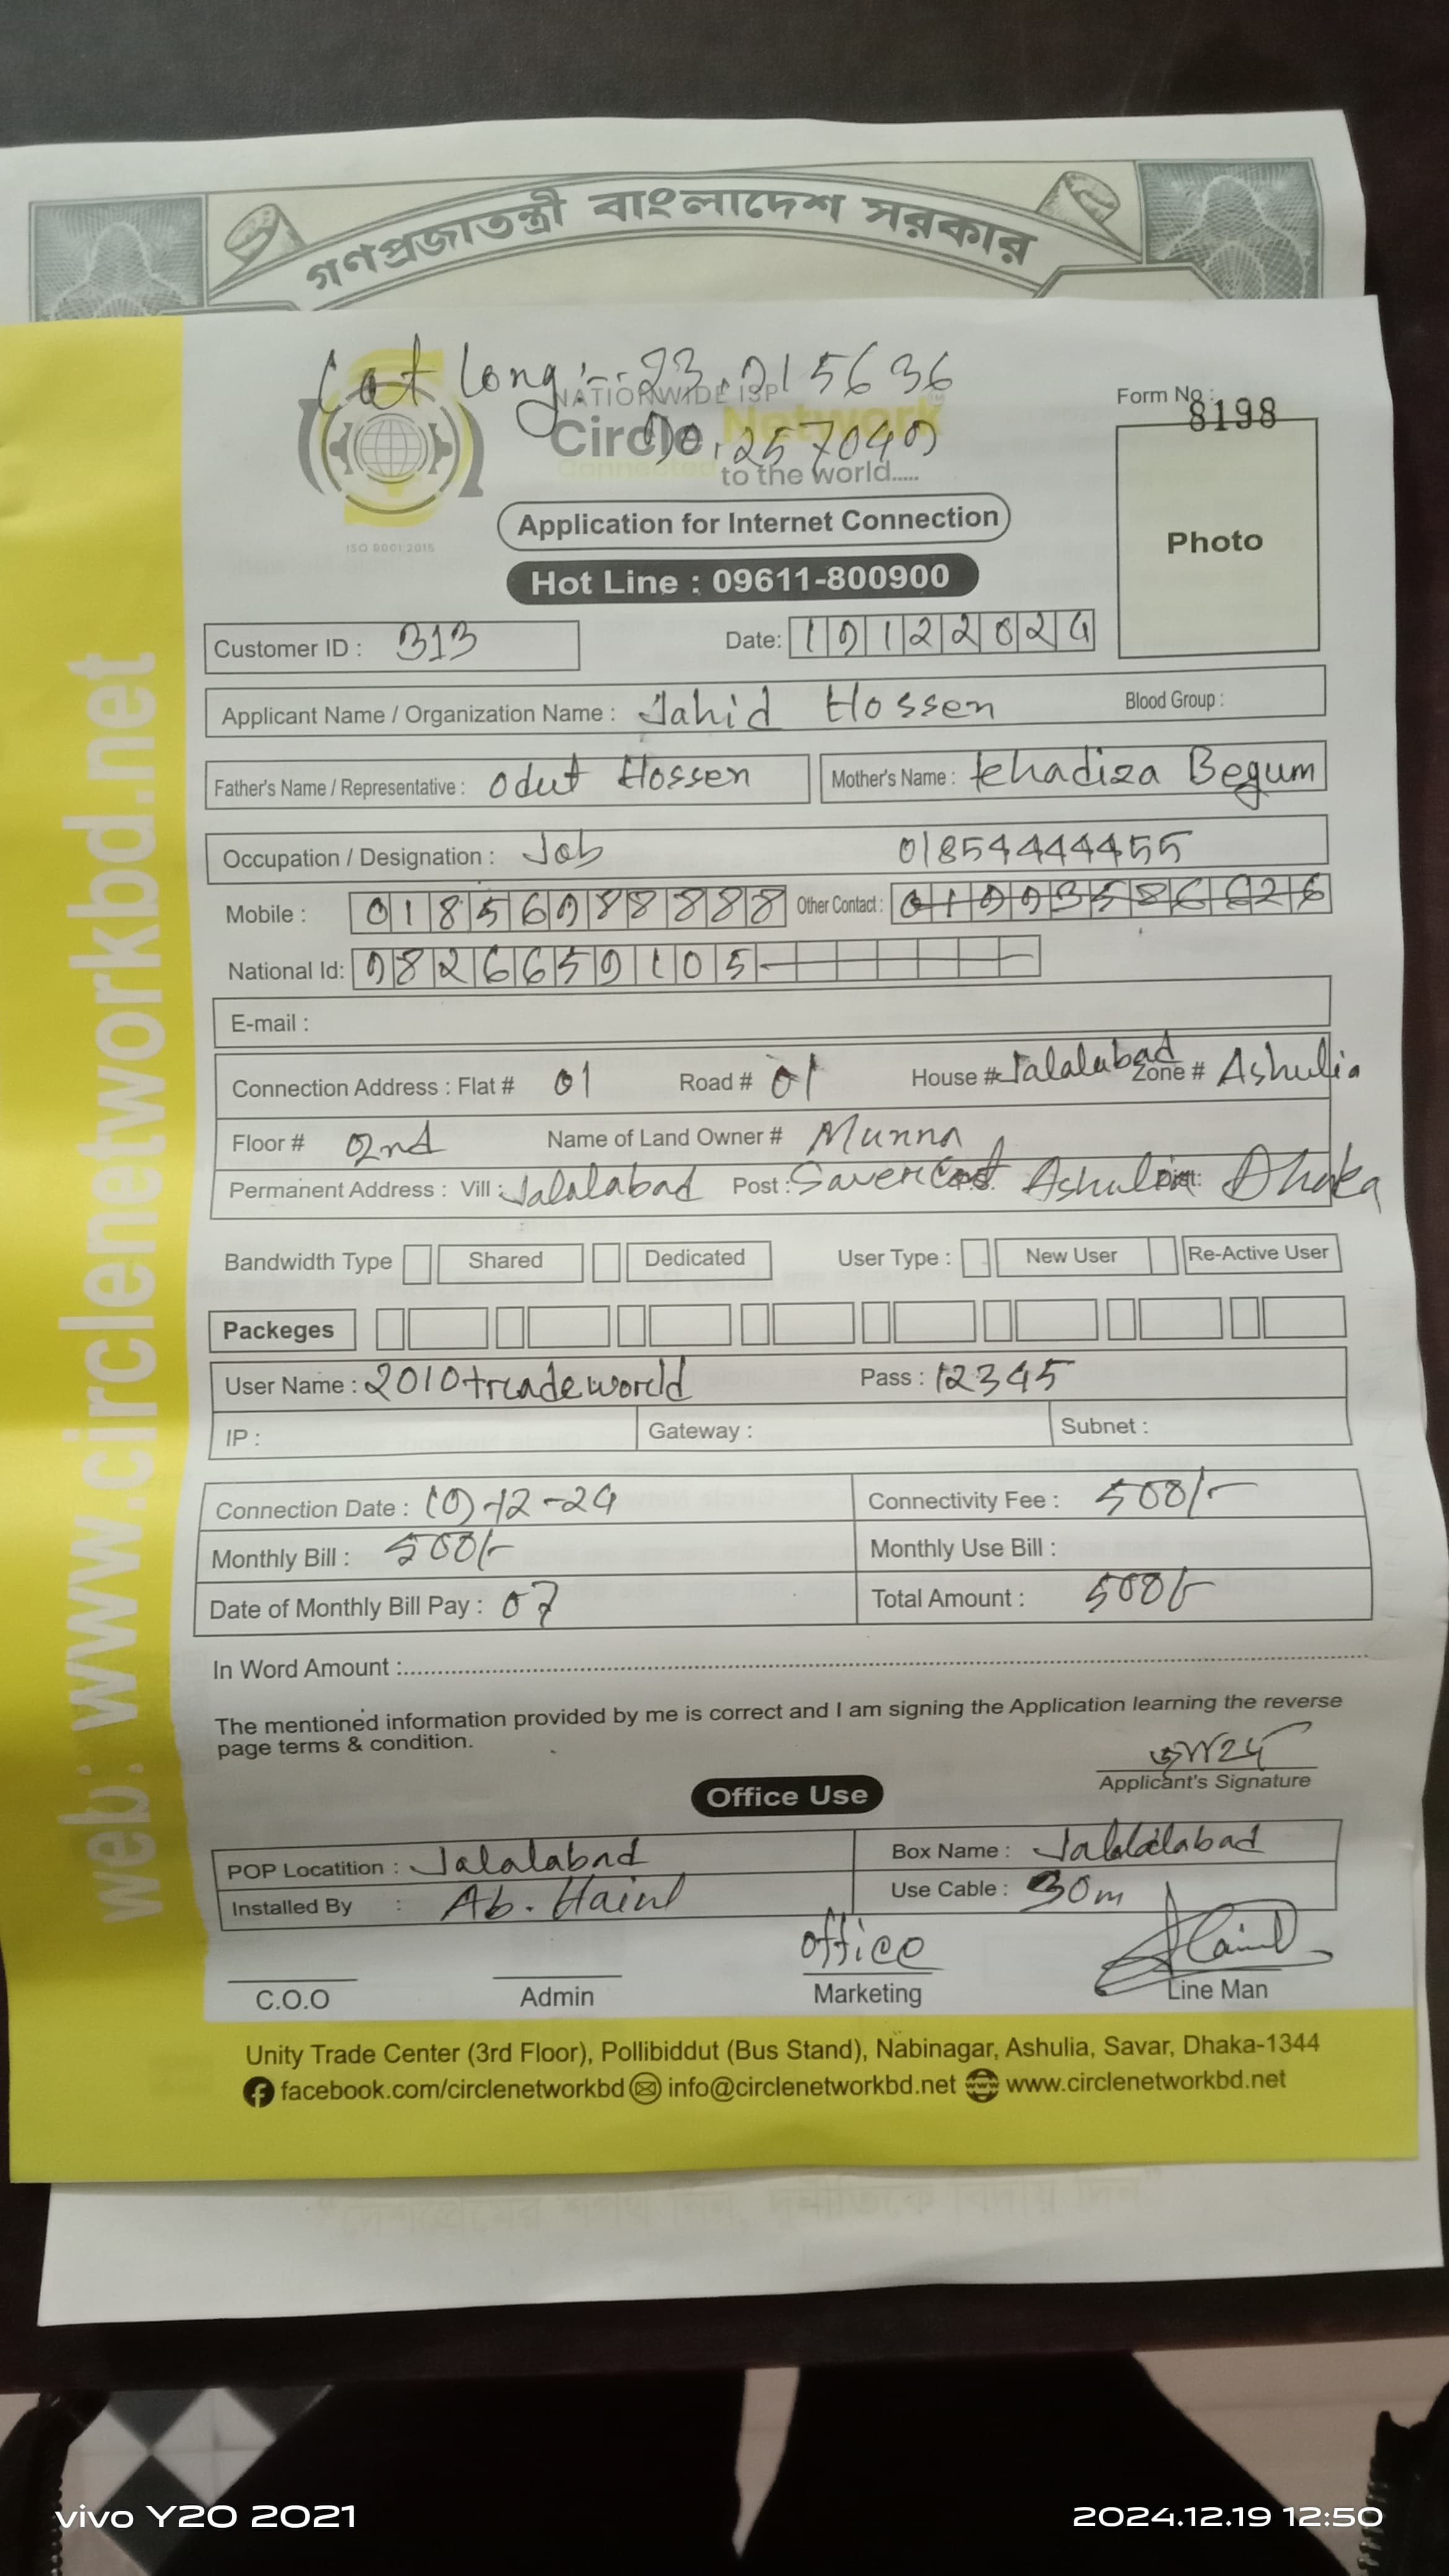 গণপ্রজাতন্ত্রী বাংলাদেশ সরকার
Lat long :- 23.915636
90.257049
NATIONWIDE ISP
Circle Network
Connected to the world.....
ISO 9001:2015
Form No : 8198
Photo
Application for Internet Connection
Hot Line : 09611-800900
Customer ID : 313 Date: 19122024
Applicant Name / Organization Name : Jahid Hossen Blood Group :
Father's Name / Representative : Odut Hossen Mother's Name : Khadiza Begum
Occupation / Designation : Job 01854444455
Mobile : 01856988888 Other Contact : 01993586626
National Id: 9826659105
E-mail :
Connection Address : Flat # 01 Road # 01 House # Jalalabad Zone # Ashulia
Floor # 02nd Name of Land Owner # Munna
Permanent Address : Vill : Jalalabad Post : Saver Cant Ashulia Dist: Dhaka
Bandwidth Type Shared Dedicated User Type : New User Re-Active User
Packeges
User Name : 2010tradeworld Pass : 12345
IP : Gateway : Subnet :
Connection Date : 19-12-24 Connectivity Fee : 500/-
Monthly Bill : 500/- Monthly Use Bill :
Date of Monthly Bill Pay : 07 Total Amount : 500/-
In Word Amount :
The mentioned information provided by me is correct and I am signing the Application learning the reverse
page terms & condition.
Applicant's Signature
Office Use
POP Locatition : Jalalabad Box Name : Jalalabad
Installed By : Ab. Hainl Use Cable : 30m
office
C.O.O Admin Marketing Line Man
Unity Trade Center (3rd Floor), Pollibiddut (Bus Stand), Nabinagar, Ashulia, Savar, Dhaka-1344
facebook.com/circlenetworkbd info@circlenetworkbd.net www.circlenetworkbd.net
web: www.circlenetworkbd.net
vivo Y20 2021 2024.12.19 12:50